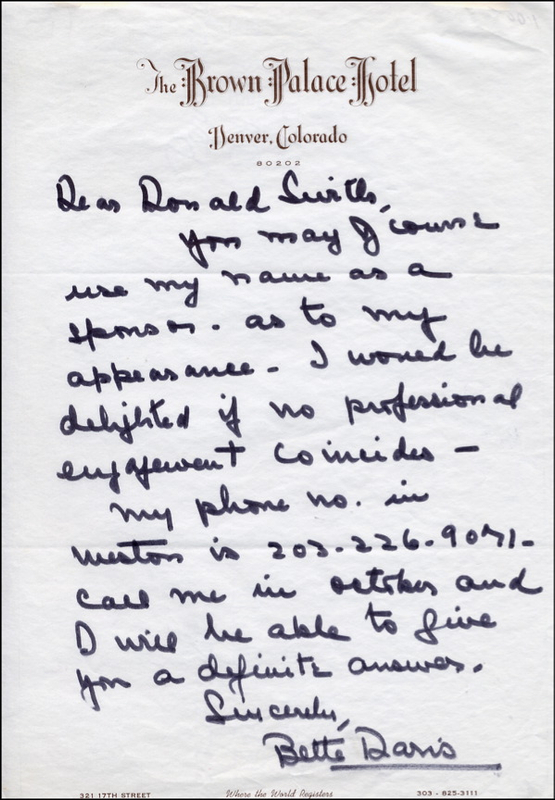 The Brown Palace Hotel
Denver, Colorado
80202
Dear Donald Smith,
you may of course
use my name as a
sponsor. as to my
appearance - I would be
delighted if no professional
engagement coincides -
my phone no. in
Weston is 203-226-9071-
Call me in October and
I will be able to give
you a definite answer.
Sincerely,
Bette Davis
321 17TH STREET Where the World Registers 303 - 825-3111